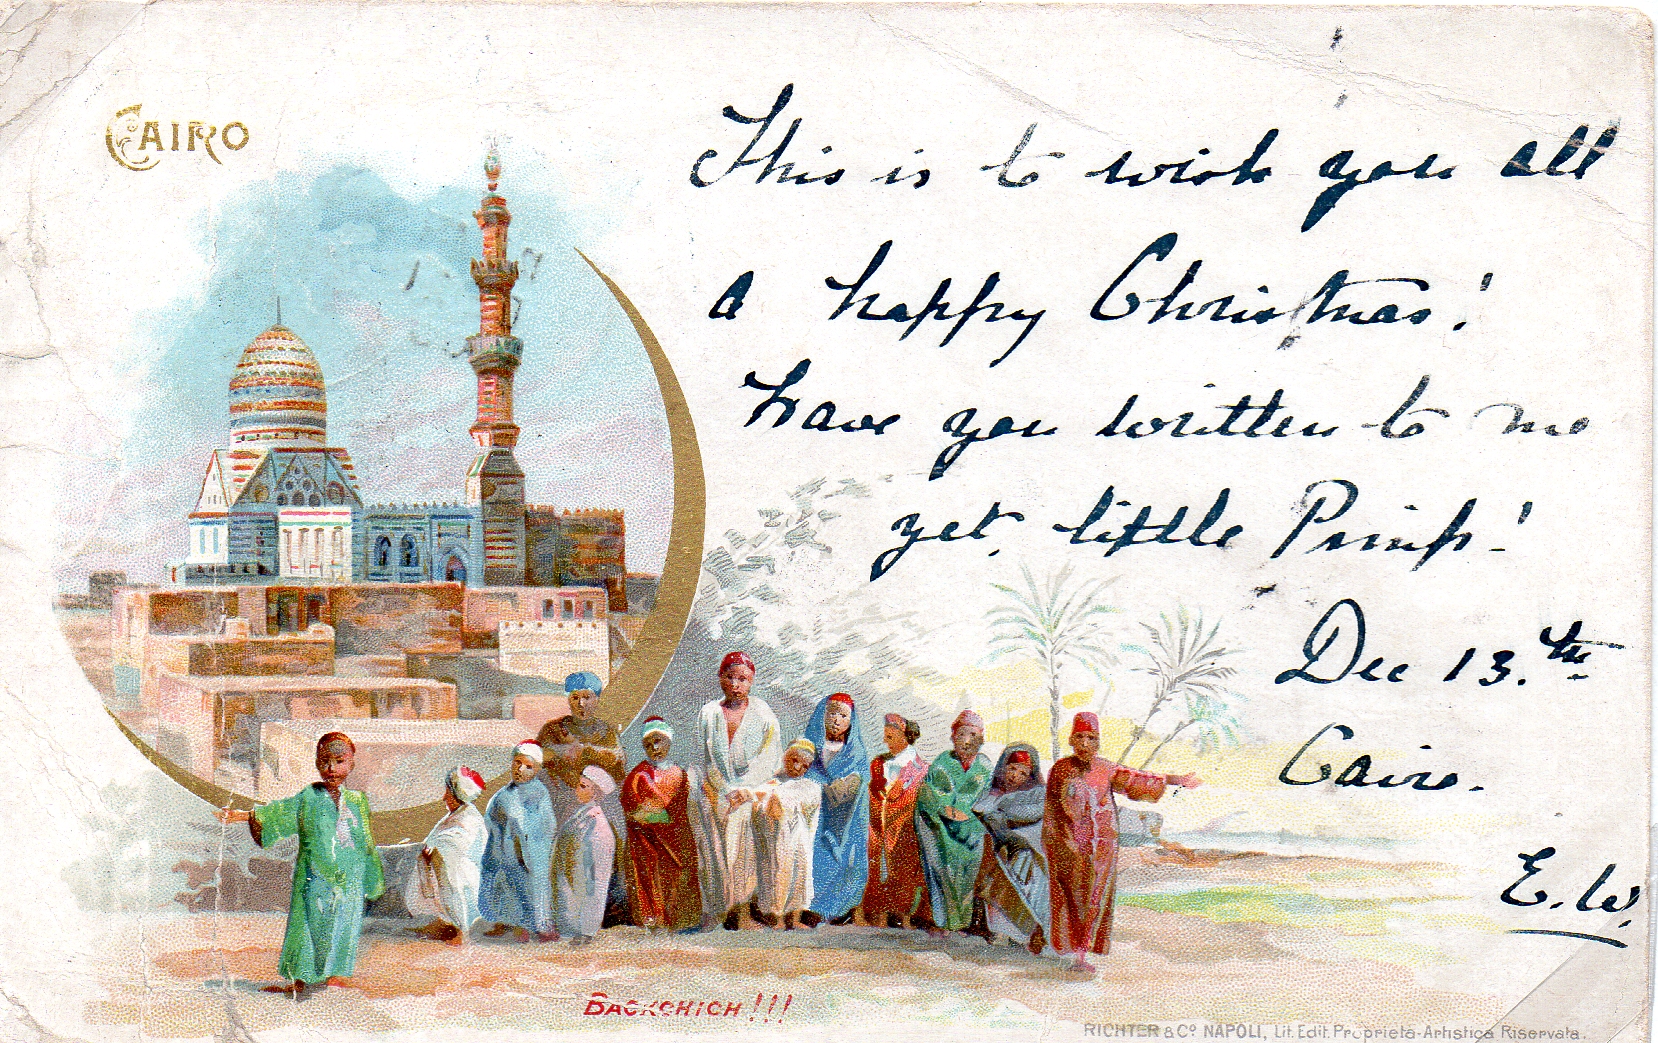 CAIRO
This is to wish you all
a happy Christmas!
Have you written to me
yet, little Primp!
Dec 13.th
Cairo.
E.W.
BACKCHICH!!!
RICHTER & Cº NAPOLI, Lit. Edit. Proprietà-Artistica Riservata.